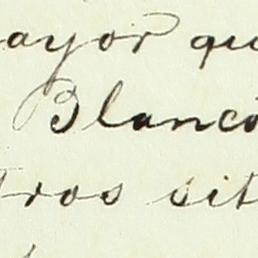 ayor qu
Blanco
tros sit